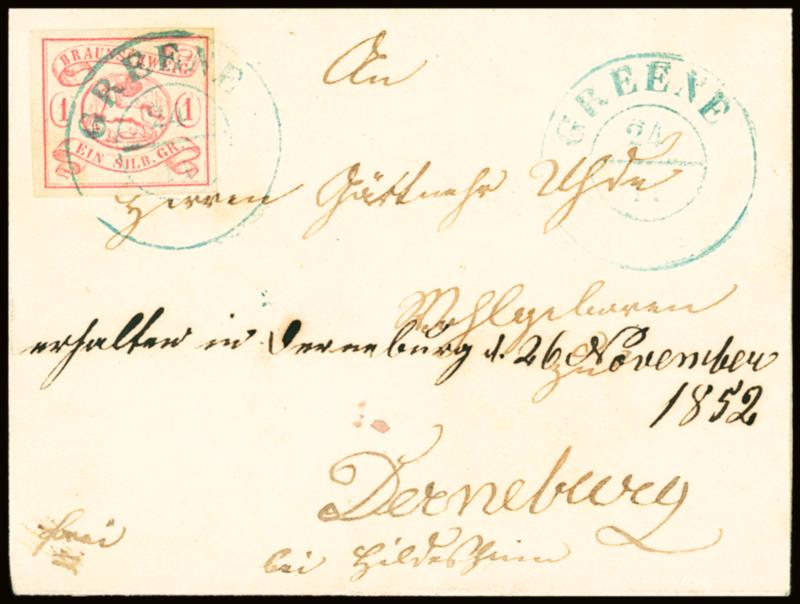 BRAUNSCHWEIG.
1 1
EIN SILB. GR.
GREENE
GREENE
24
An
Herrn Gärtnehr Uhde
Wohlgeboren
erhalten in Derneburg d. 26 November
zu
1852
Derneburg
bei Hildesheim
frei